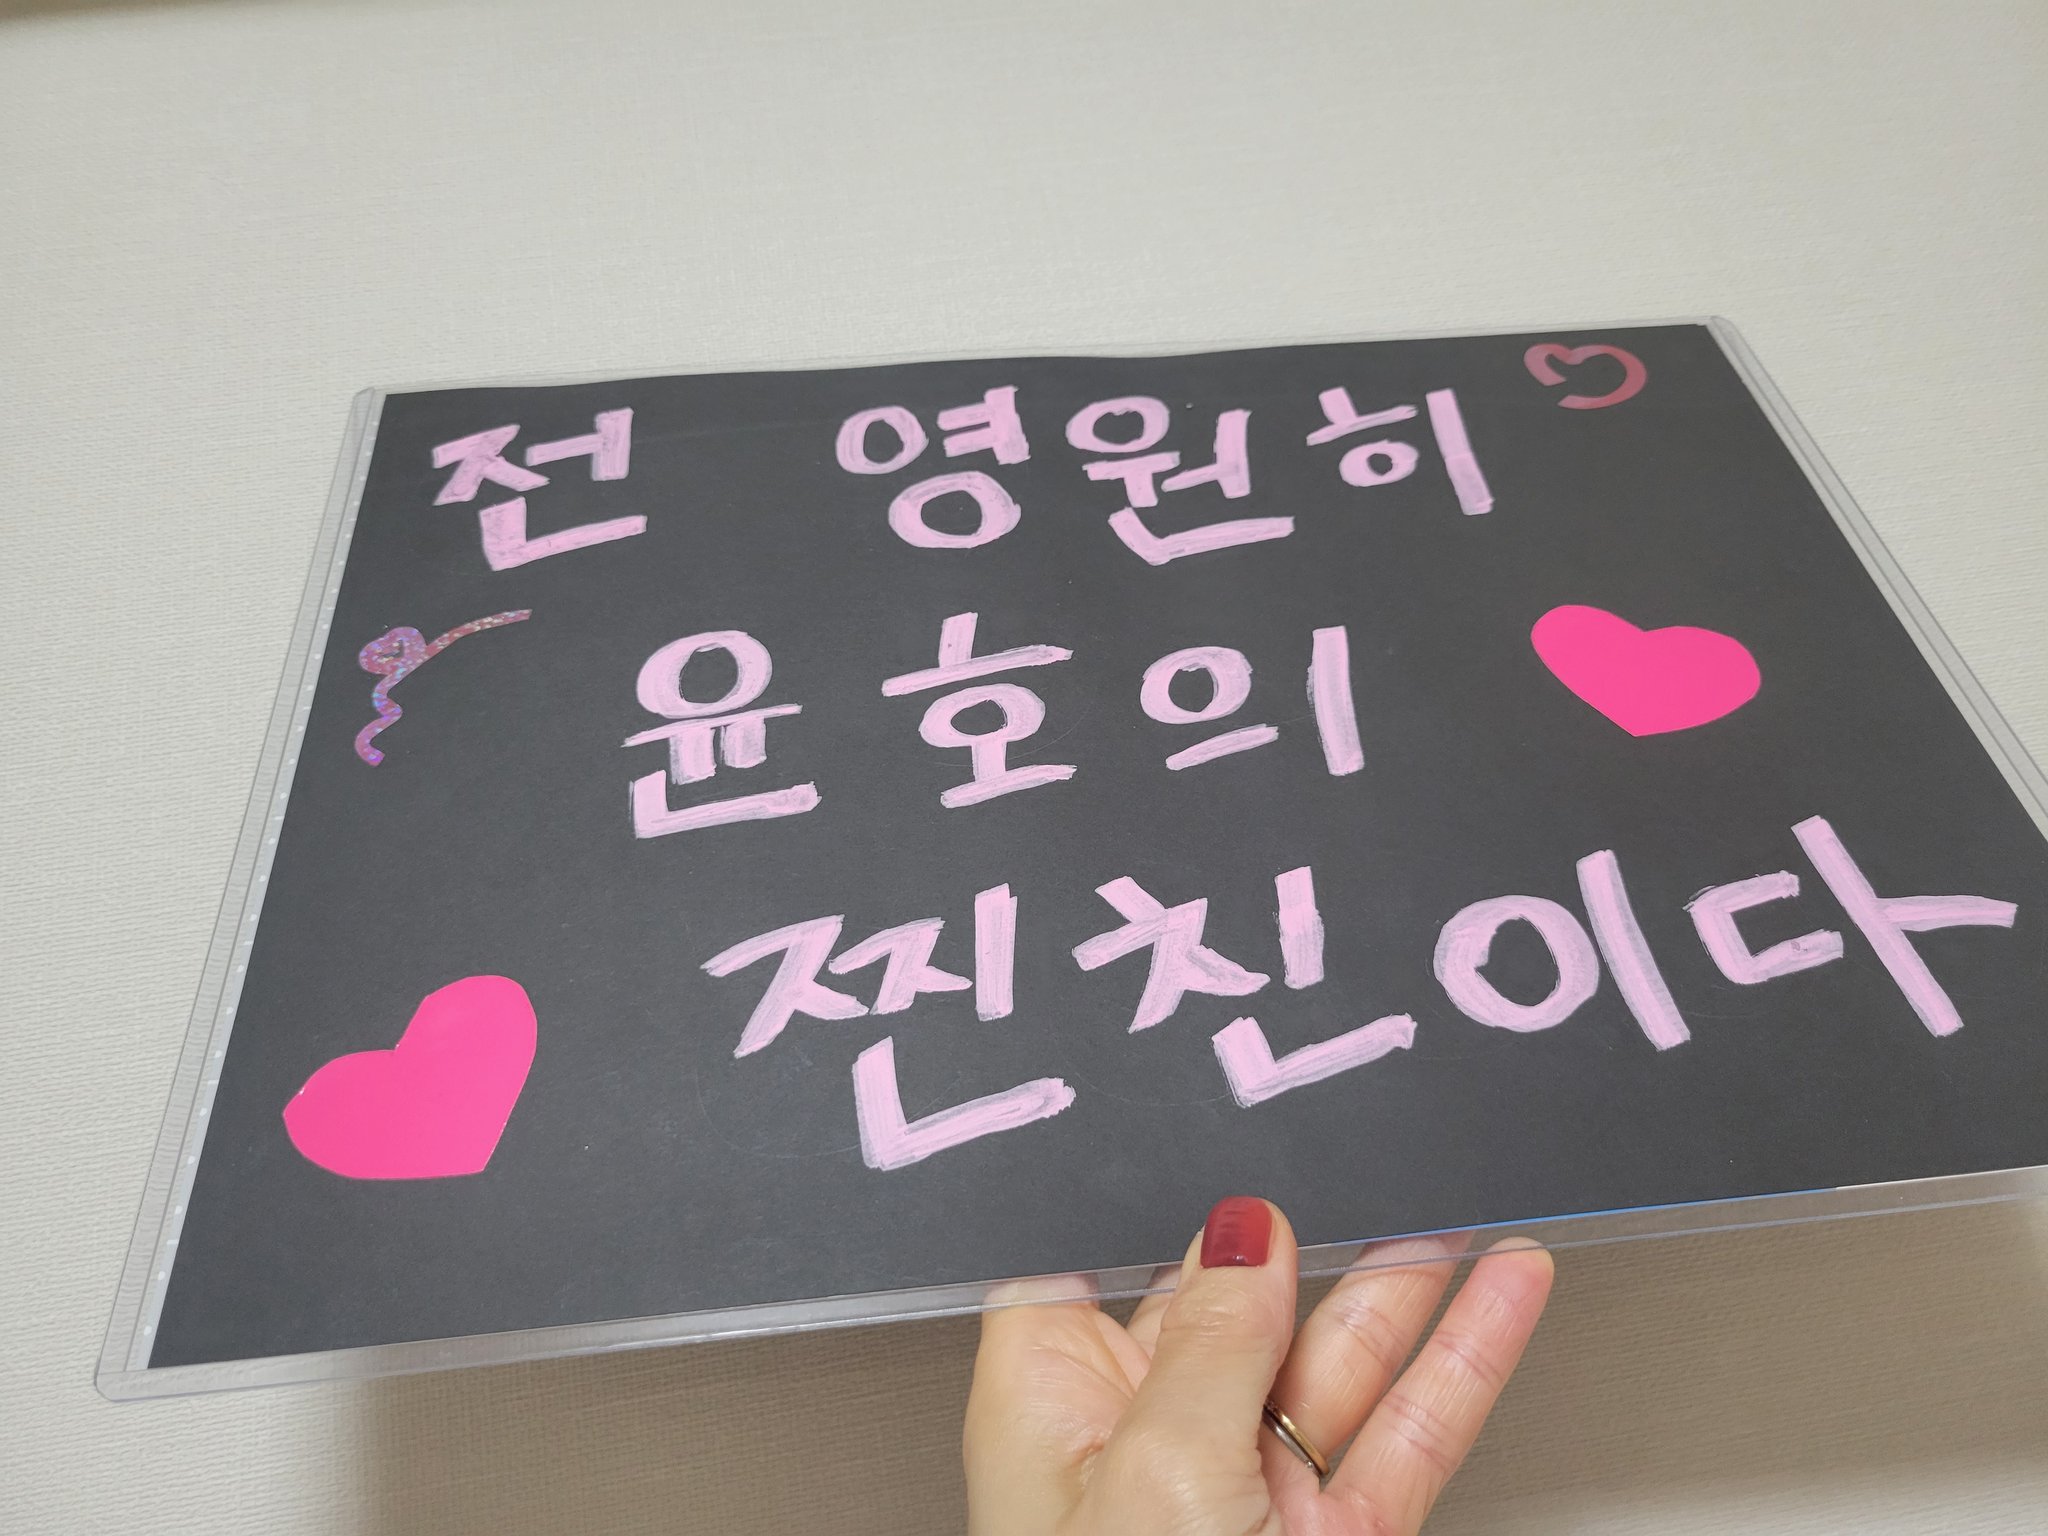 전 영원히
윤호의
찐친이다